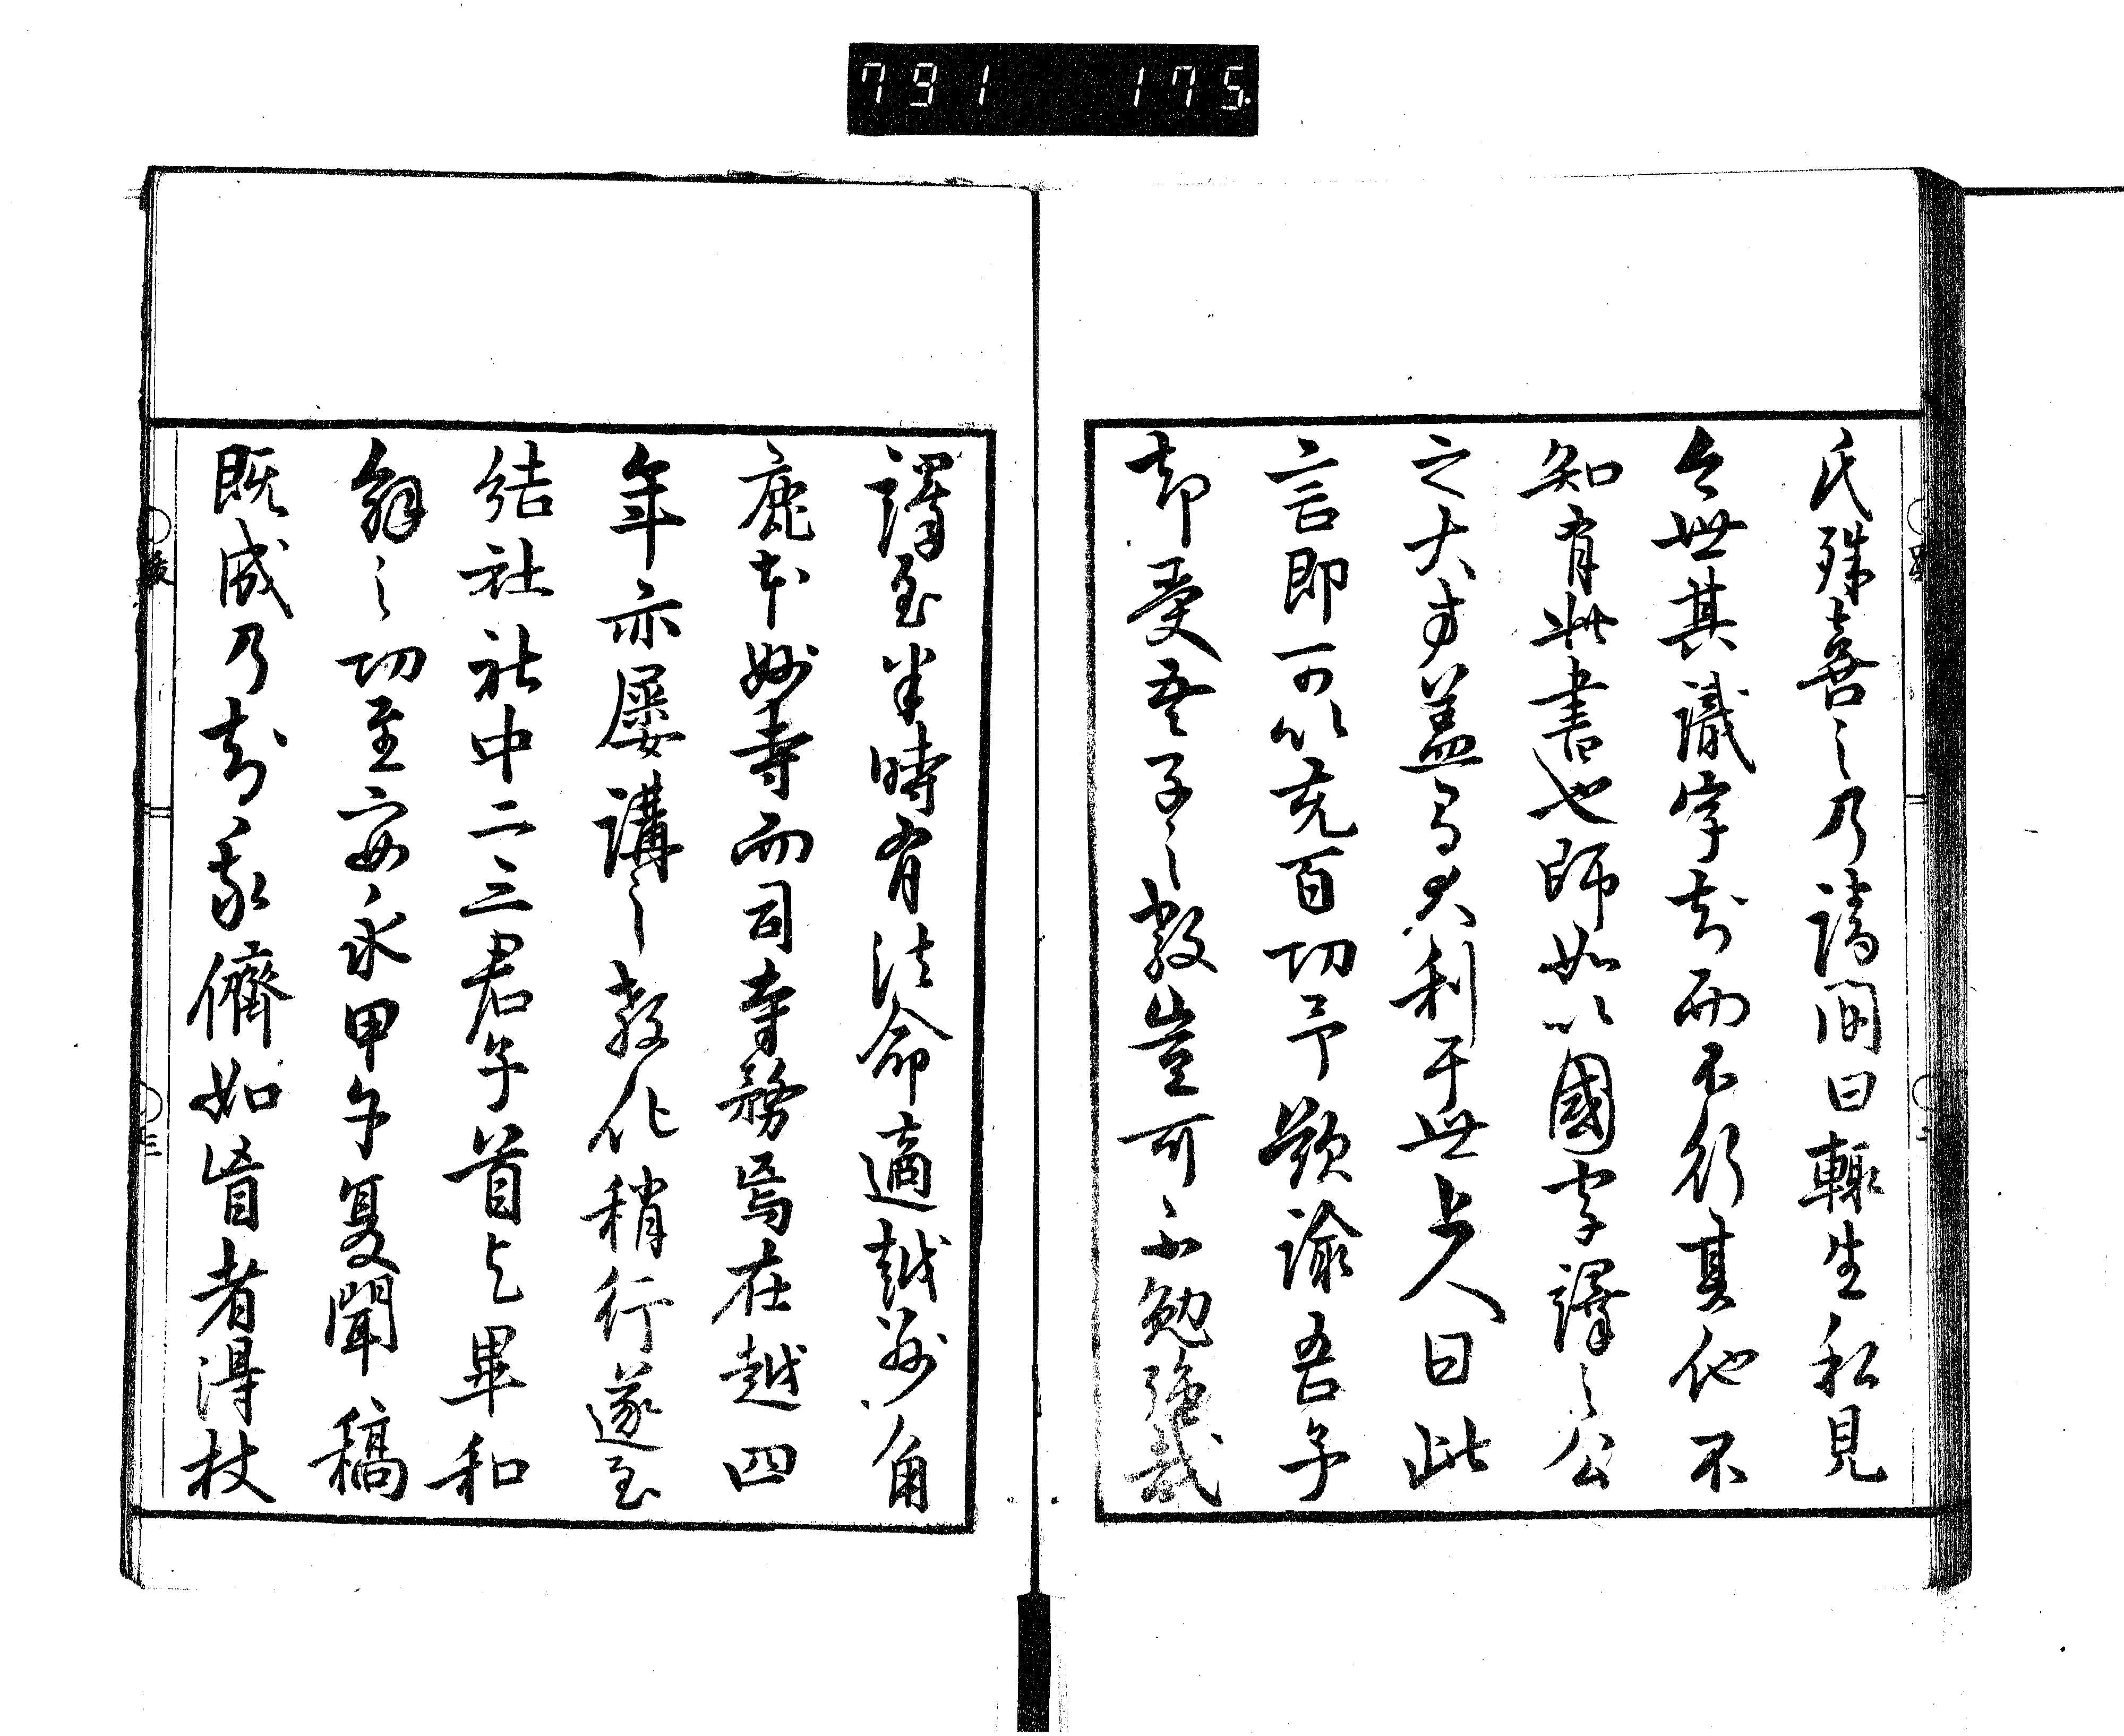 791 175.
氏殊喜之乃請間曰輙生私見
今世其識字者而不行其他不
知有此書也師如以國字譯之公
之大方蓋多大利于世上人曰此
言即可以充百功予歎諭吾子
却受吾子之教豈可不勉強哉
譯至半時有法命適越州角
鹿本妙寺而司寺務焉在越四
年亦屡講之教化稍行遂至
結社社中二三君子首之畢和
解之功至安永甲午夏聞稿
既成乃刻我儕如盲者得杖
三